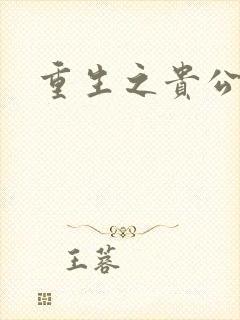 重生之貴公
王蓉